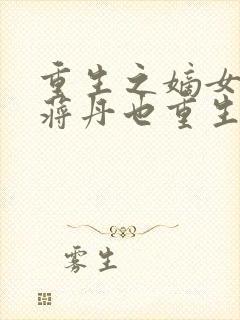 重生之嫡女
蒋丹也重生
雾生